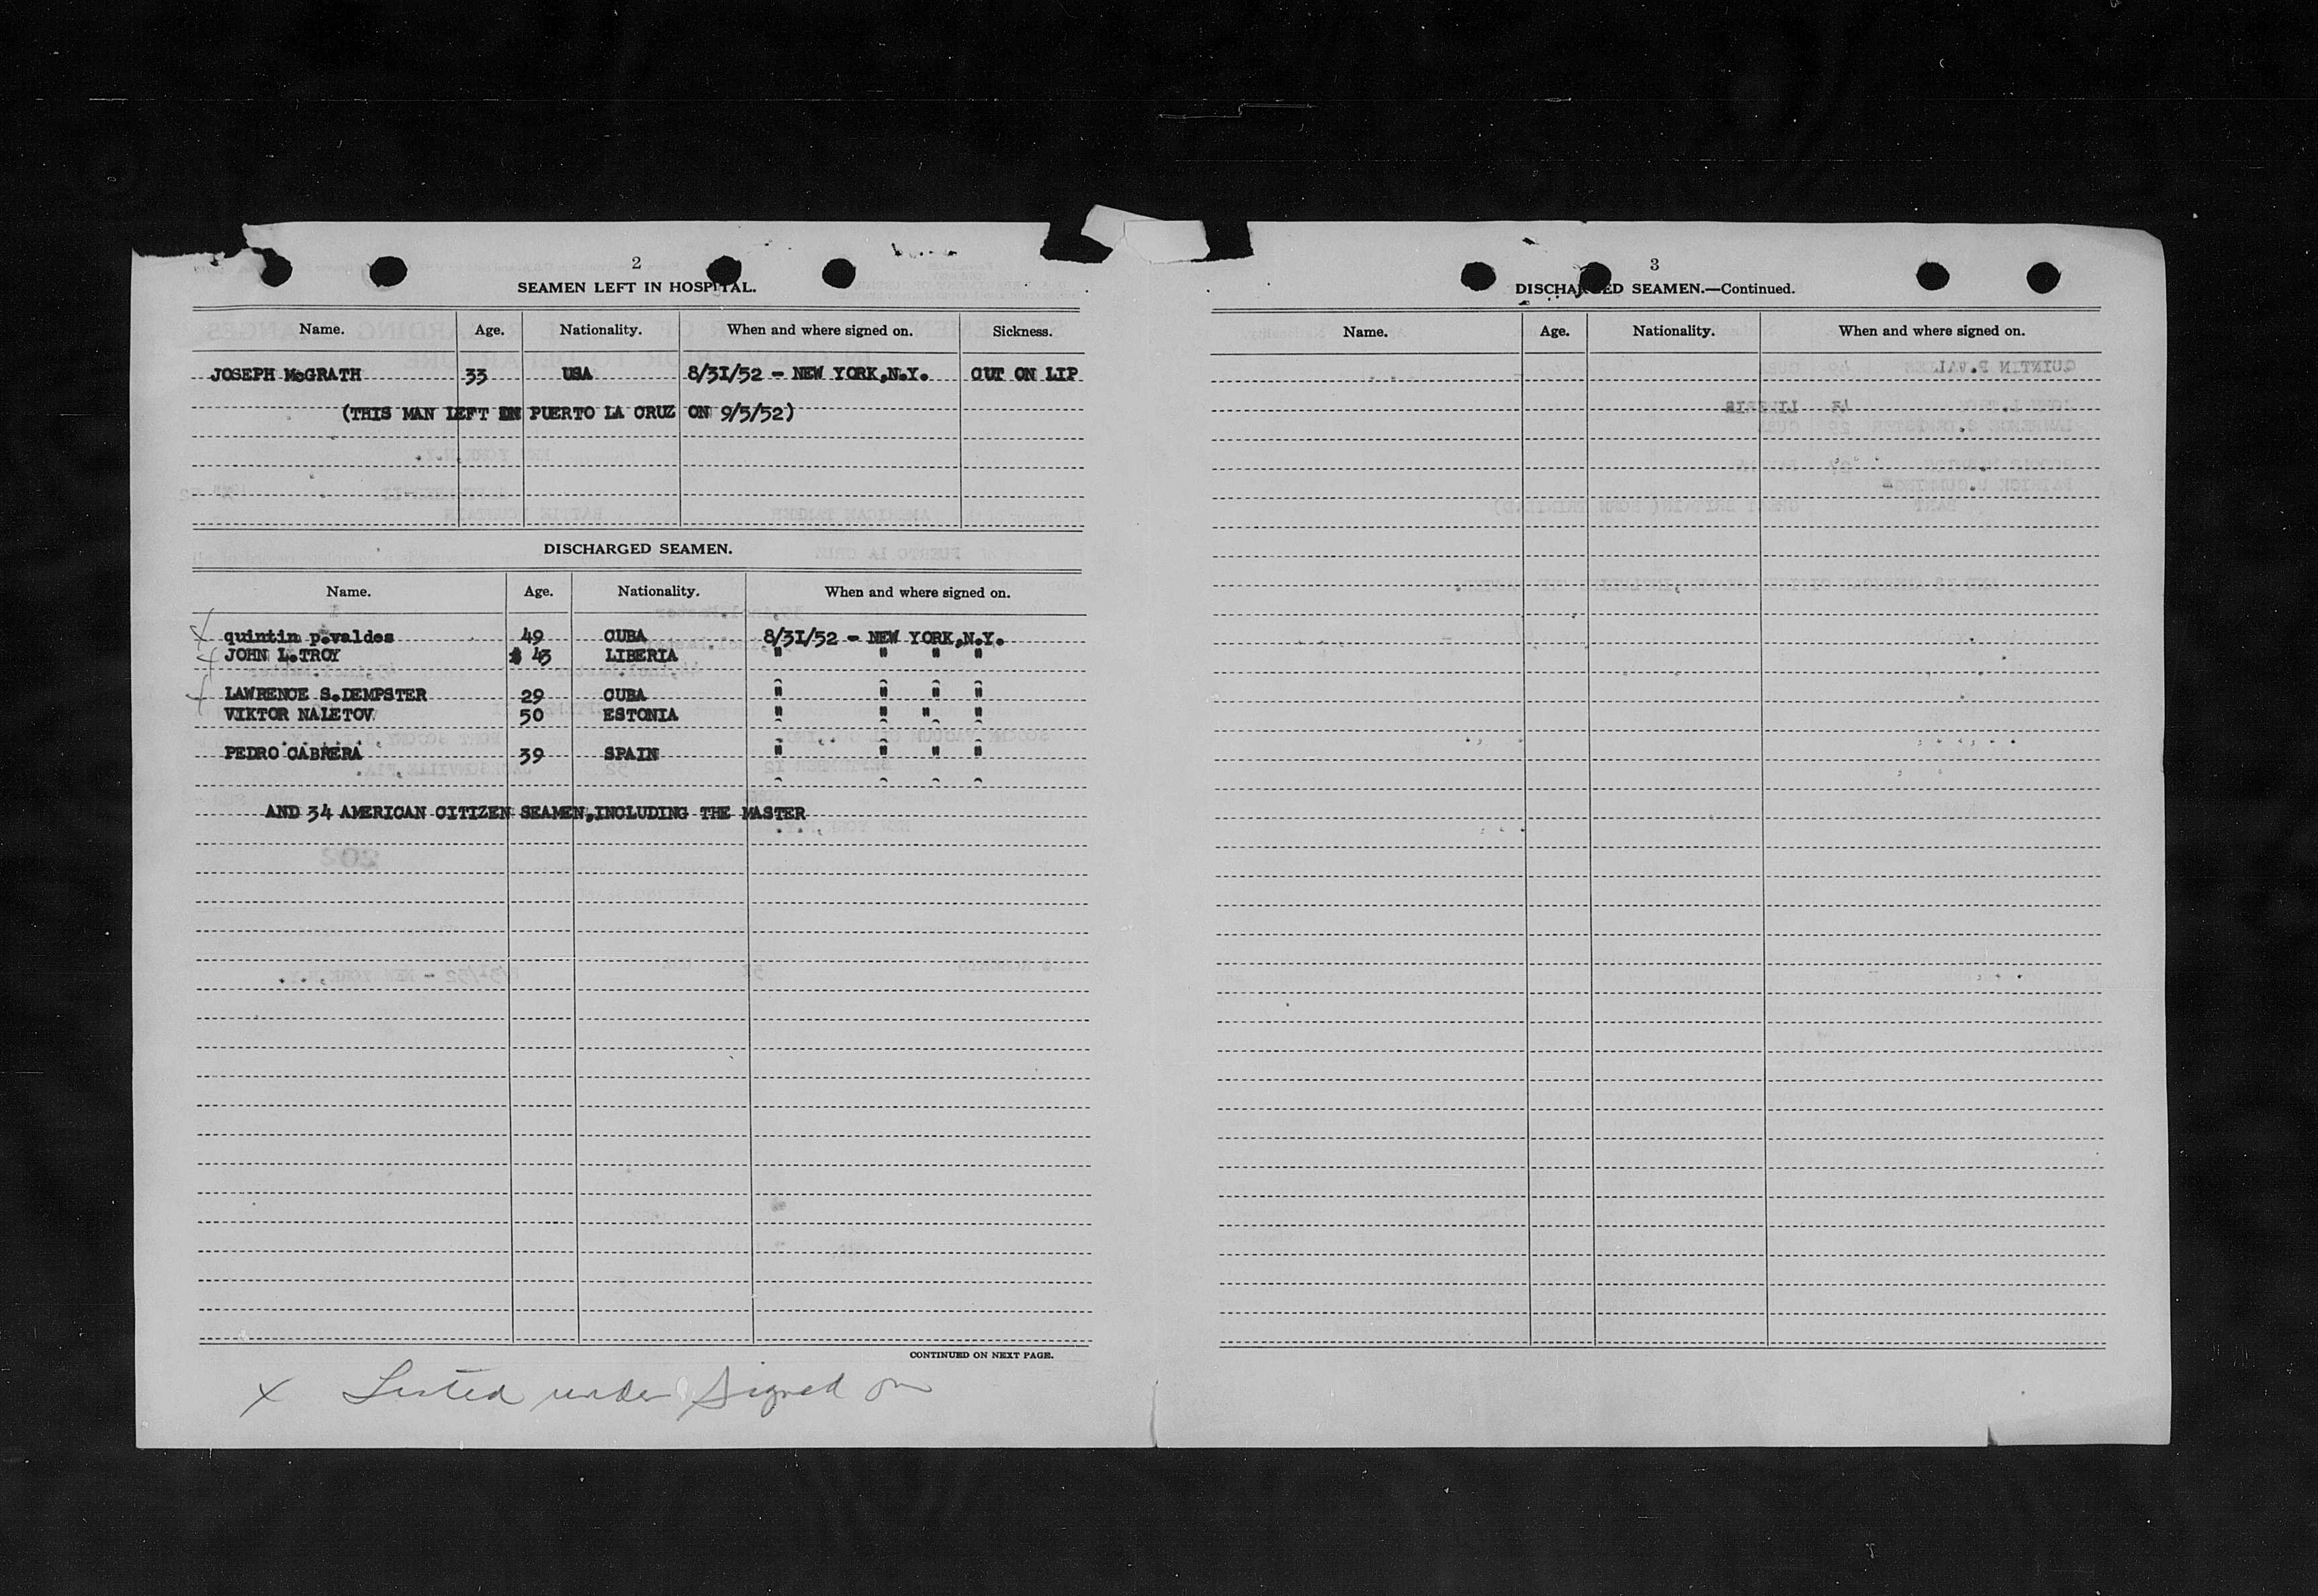 2
SEAMEN LEFT IN HOSPITAL.
Name. Age. Nationality. When and where signed on. Sickness.
JOSEPH McGRATH 33 USA 8/31/52 - NEW YORK,N.Y. CUT ON LIP
(THIS MAN LEFT IN PUERTO LA CRUZ ON 9/5/52)
DISCHARGED SEAMEN.
Name. Age. Nationality. When and where signed on.
X quintin p.valdes 49 CUBA 8/31/52 - NEW YORK,N.Y.
X JOHN L.TROY 43 LIBERIA " " " "
X LAWRENCE S.DEMPSTER 29 CUBA " " " "
VIKTOR NALETOV 50 ESTONIA " " " "
PEDRO CABRERA 39 SPAIN " " " "
AND 34 AMERICAN CITIZEN SEAMEN,INCLUDING THE MASTER
CONTINUED ON NEXT PAGE.
X Listed under Signed on
3
DISCHARGED SEAMEN.—Continued.
Name. Age. Nationality. When and where signed on.